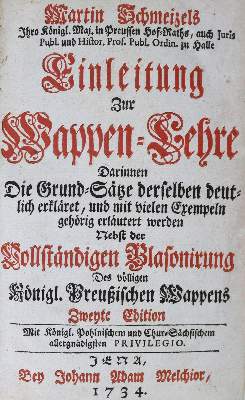 Martin Schmeizels
Ihro Königl. Maj. in Preussen Hof-Raths, auch Juris
Publ. und Histor. Prof. Publ. Ordin. zu Halle
Einleitung
Zur
Wappen-Lehre
Darinnen
Die Grund-Sätze derselben deut-
lich erkläret, und mit vielen Exempeln
gehörig erläutert werden
Nebst der
Vollständigen Blasonirung
Des völligen
Königl. Preußischen Wappens
Zweyte Edition
Mit Königl. Pohlnischem und Chur-Sächsischem
allergnädigsten PRIVILEGIO.
JENA,
Bey Johann Adam Melchior,
1734.